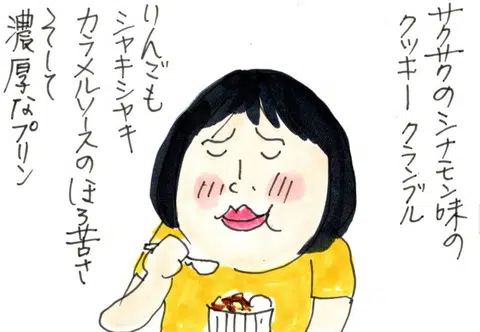 サクサクのシナモン味の
クッキークランブル
りんごも
シャキシャキ
カラメルソースのほろ苦さ
そして
濃厚なプリン